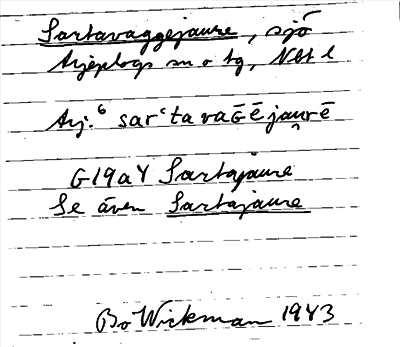 Sartavaggejaure, sjö
Arjeplogs sn o tg, Nbt l
Arj. 6 sar‘tavaGējaurē
G19aY Sartajaure
Se även Sartajaure
Bo Wickman 1943